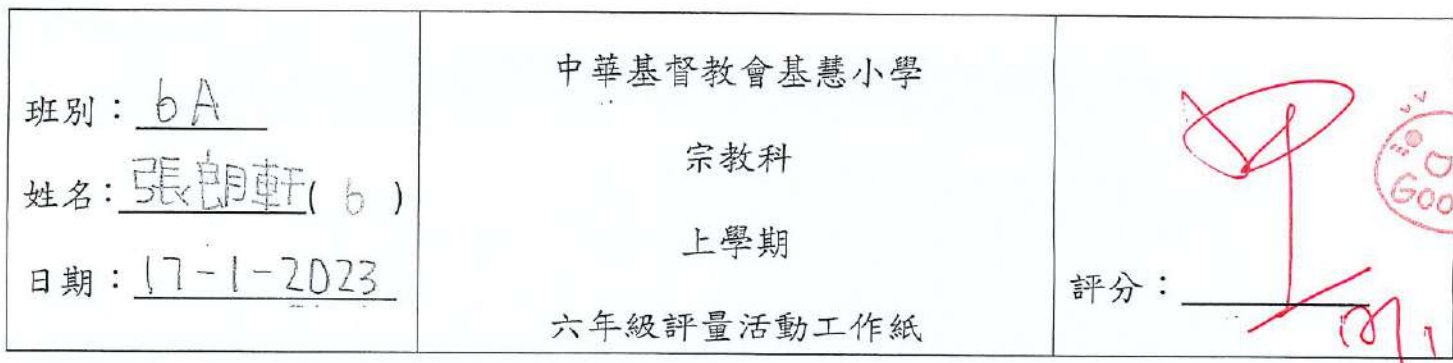 班別：6A
姓名：張朗軒( 6 )
日期：17-1-2023
中華基督教會基慧小學
宗教科
上學期
六年級評量活動工作紙
評分：甲
GOO